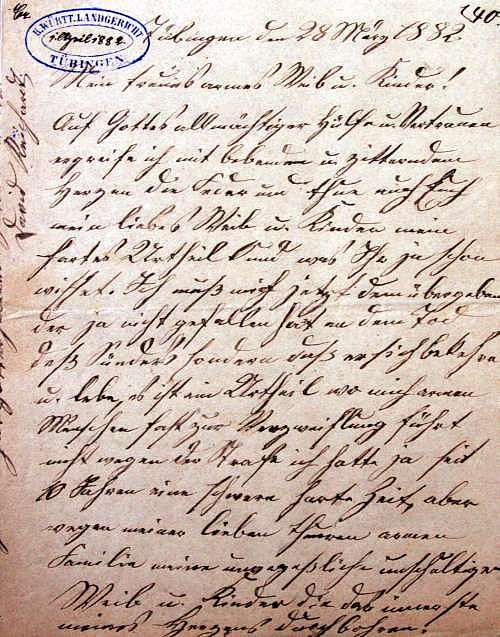 K. WÜRTT. LANDGERICHT
1. April 1882.
TÜBINGEN
140
Tübingen den 28 März 1882
Mein treues armes Weib u. Kinder!
Auf Gottes allmächtiger Hülfe u. Vertrauen
ergreife ich mit bebendem u. zitterndem
Herzen die Feder und thue auch Euch
mein liebes Weib u. Kinder mein
hartes Urtheil kund was Ihr ja schon
wisset. Ich muß mich jetzt dem übergeben
der ja nicht gefallen hat an dem Tod
deß Sünders sondern daß er sich bekehre
u. lebe, es ist ein Urtheil wo mich armen
Menschen fast zur Verzweiflung führt
nicht wegen der Strafe ich hatte ja seit
10 Jahren eine schwere harte Zeit, aber
wegen meiner lieben theuren armen
Familie meine unvergeßliche unschuldige
Weib u. Kinder die das innerste
meines Herzens durchbohren.